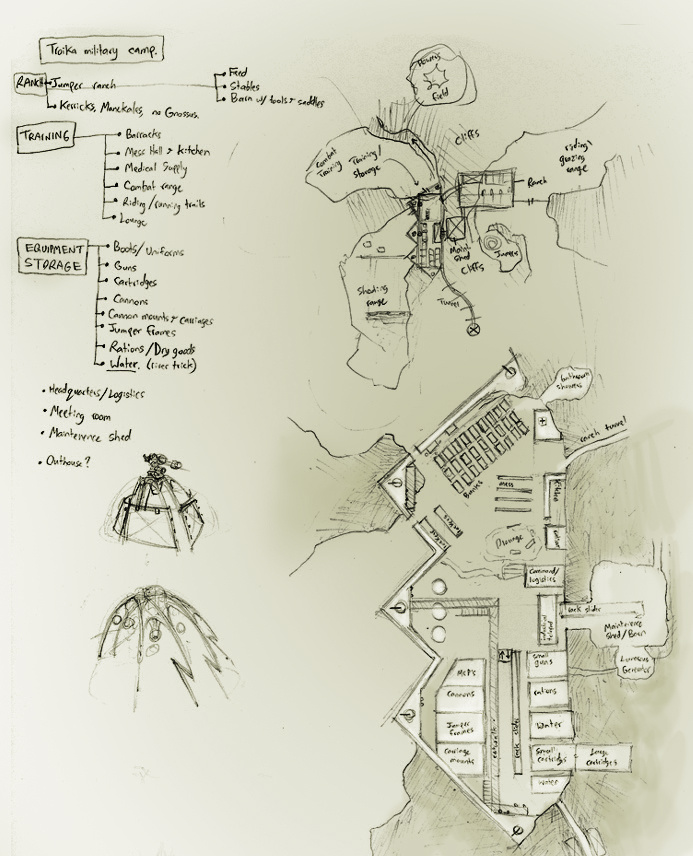 Troika military camp.
RANCH
Jumper ranch
Feed
Stables
Barn w/ tools & saddles
Kerricks, Manckales, no Grossus.
TRAINING
Barracks
Mess Hall & kitchen
Medical Supply
Combat range
Riding/running trails
Lounge
EQUIPMENT
STORAGE
Boots/Uniforms
Guns
Cartridges
Cannons
Cannon mounts & carriages
Jumper frames
Rations/Dry goods
Water. (river trick)
Headquarters/Logistics
Meeting room
Maintenence shed
Outhouse?
Flowers
Field
Cliffs
Combat
Training
Training/
storage
riding/
grazing
range
Ranch
Maint
shed
Cliffs
Shooting
range
Tunnel
bathroom
showers
ranch tunnel
Bunks
mess
kitchen
lounge
Command/
logistics
rack slider
Maintenence
shed/Barn
Luminous
Generator
small
guns
MCP's
rations
Cannons
Water
Jumper
frames
catwalk
rack slider
Small
cartridges
Large
cartridges
Carriage
mounts
Water